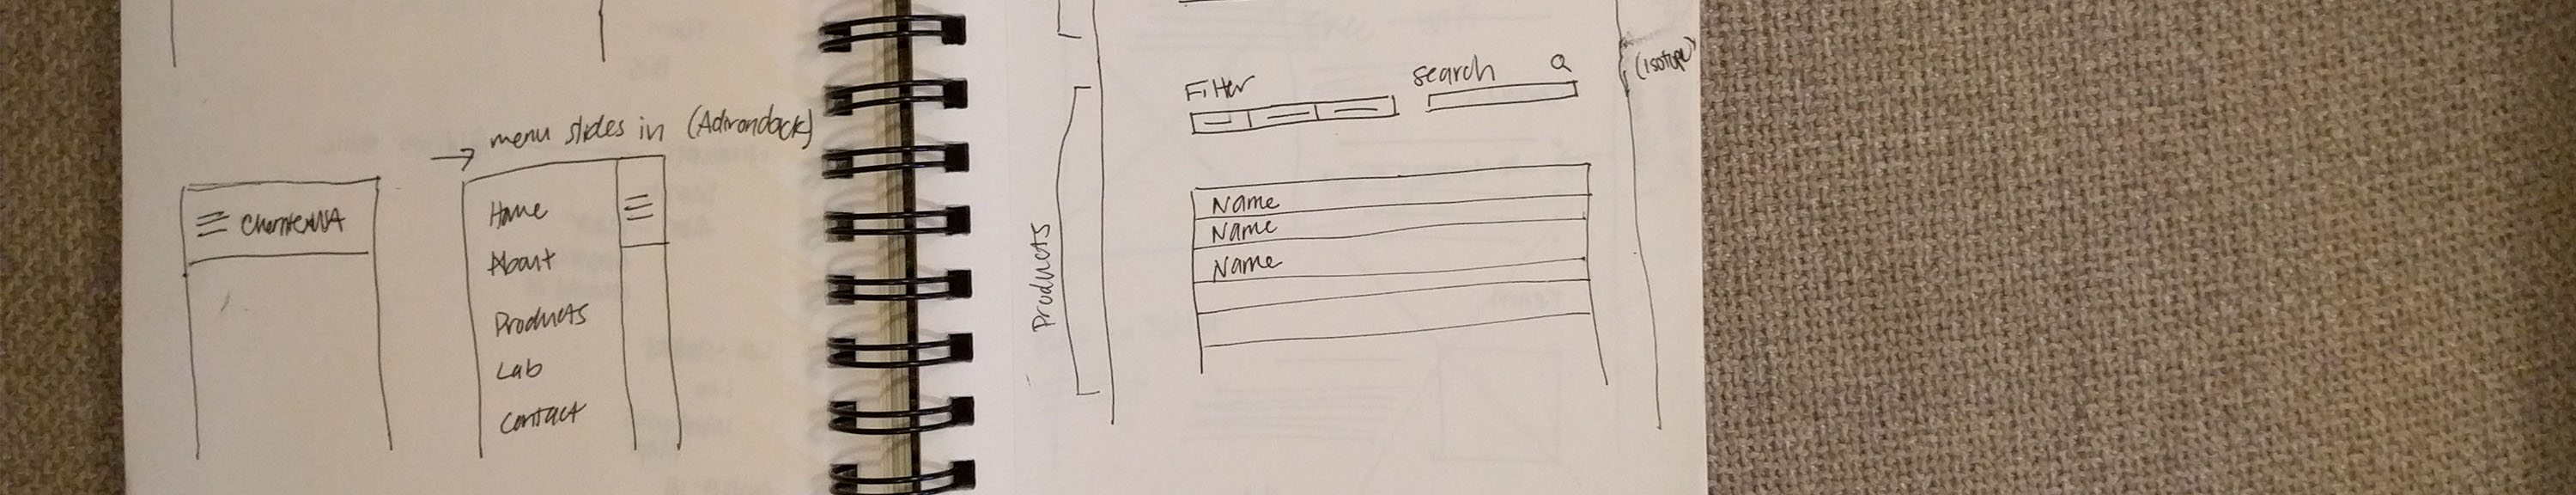 → menu slides in (Adirondack)
Home
About
Products
Lab
Contact
Products
Filter
search
Name
Name
Name
(isotope)